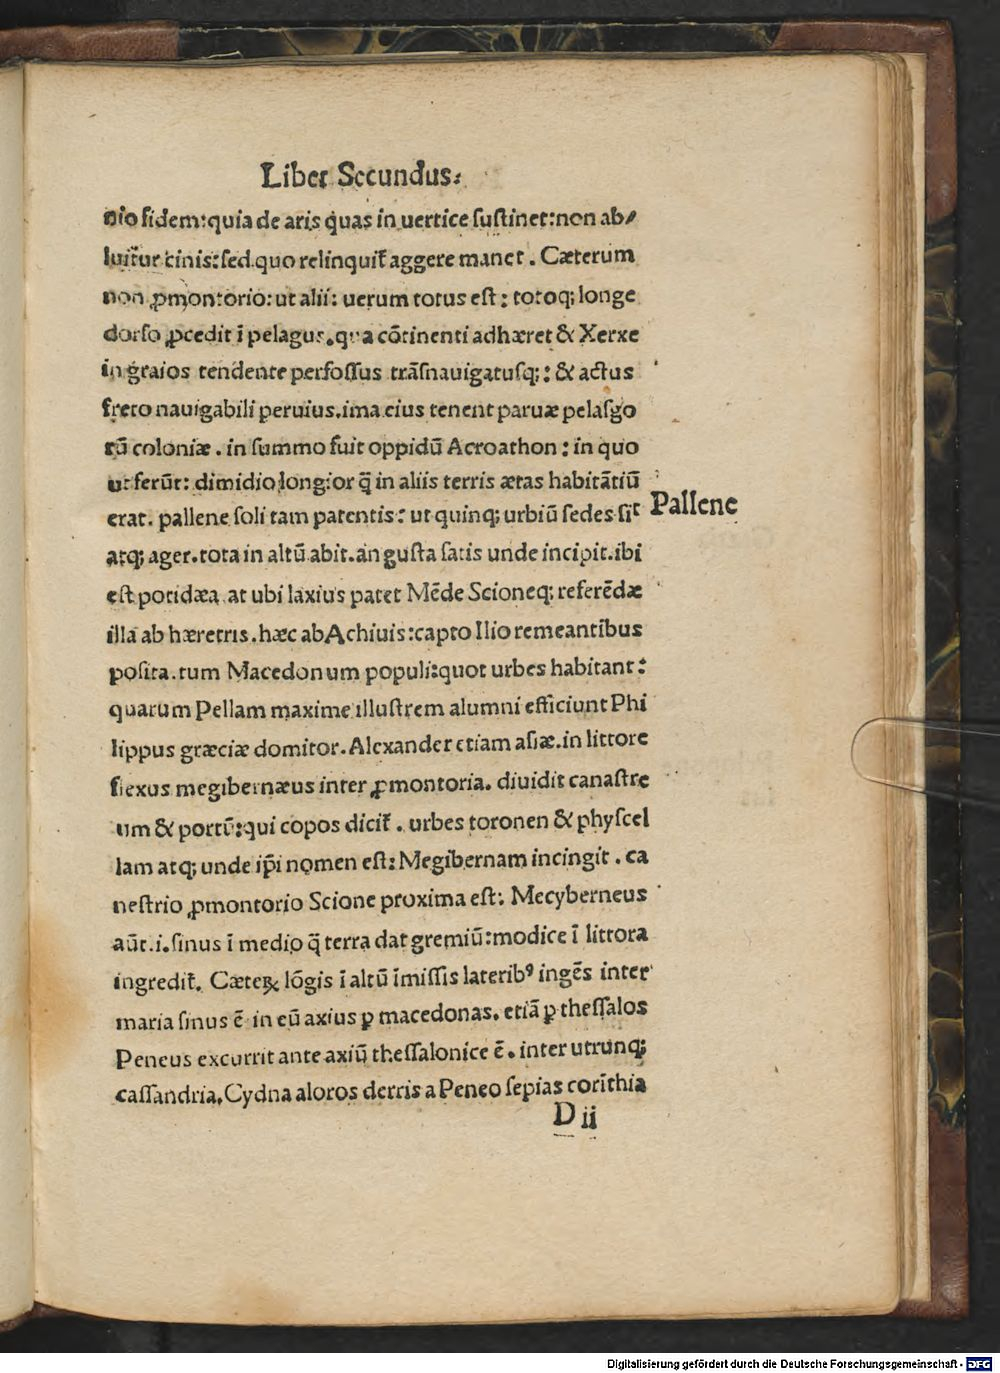 Liber Secundus:
nio fidem: quia de aris quas in uertice sustinet: non ab⸗
luit͛ur cinis: sed quo relinquit͛ aggere manet . Cæterum
non ꝓmontorio: ut alii: uerum totus est: totoq; longe
dorso ꝓcedit ī pelagus. qua cōtinenti adhæret & Xerxe
in graios tendente perfossus trāsnauigatusq;: & actus
freto nauigabili peruius. ima eius tenent paruæ pelasgo
rū coloniæ . in summo fuit oppidū Acroathon : in quo
ut ferūt: dimidio longior q̄ in aliis terris ætas habitātiū
erat. pallene soli tam patentis: ut quinq; urbiū sedes sit
Pallene
atq; ager. tota in altū abit. angusta satis unde incipit. ibi
est potidæa at ubi laxius patet Mēde Scioneq; referēdæ
illa ab hæretris. hæc ab Achiuis: capto Ilio remeantibus
posita. tum Macedonum populi: quot urbes habitant:
quarum Pellam maxime illustrem alumni efficiunt Phi
lippus græciæ domitor. Alexander etiam asiæ. in littore
flexus megibernæus inter ꝓmontoria. diuidit canastre
um & portū: qui copos dicit͛ . urbes toronen & physcel
lam atq; unde ip̄i nomen est: Megibernam incingit . ca
nestrio ꝓmontorio Scione proxima est: Mecyberneus
aūt .i. sinus ī medio q̄ terra dat gremiū: modice ī littora
ingredit͛. Cæteꝝ lōgis ī altū īmissis lateribꝰ ingēs inter
maria sinus ē in eū axius ꝑ macedonas. etiā ꝑ thessalos
Peneus excurrit ante axiū thessalonice ē. inter utrunq;
cassandria. Cydna aloros derris a Peneo sepias corīthia
D ii
Digitalisierung gefördert durch die Deutsche Forschungsgemeinschaft - DFG